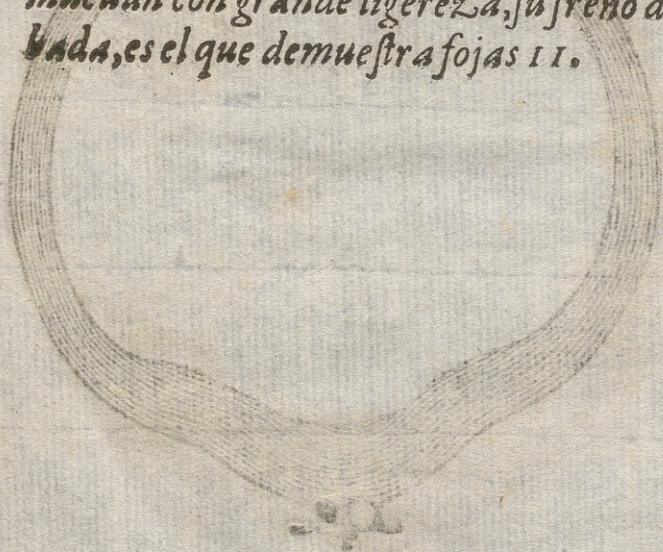 con grande ligereza, su freno
bada, es el que demuestra fojas 11.